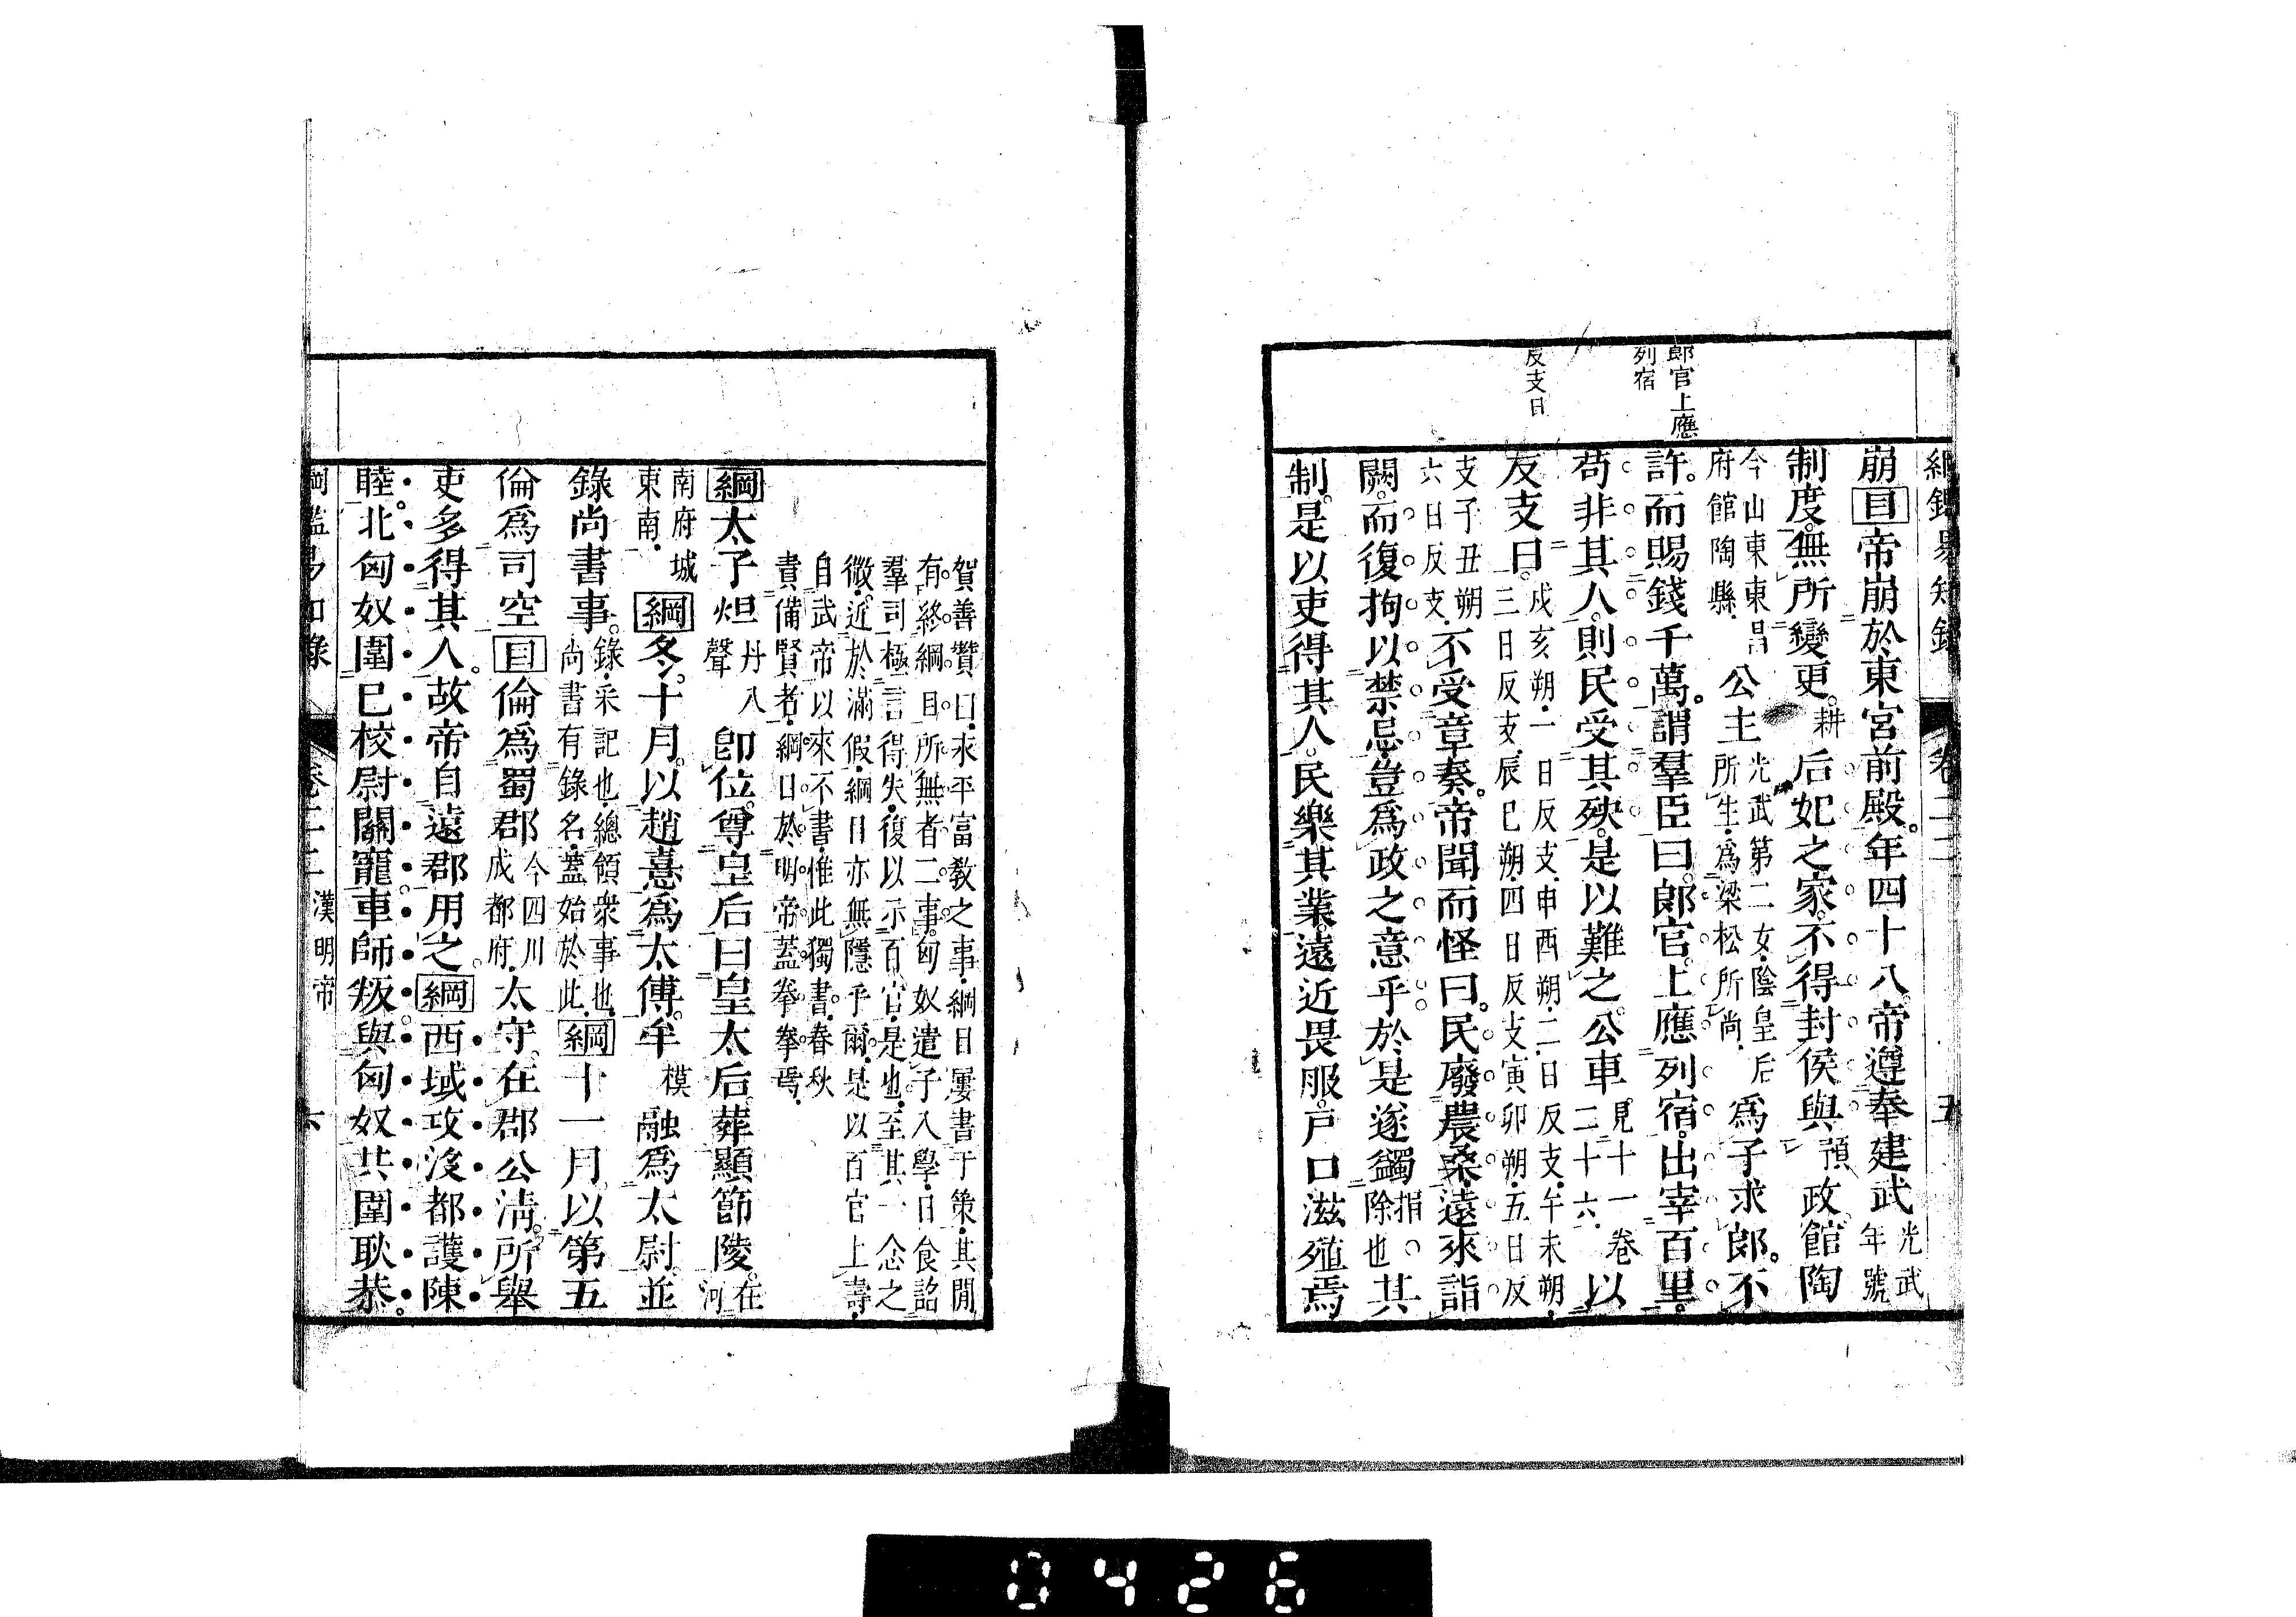 郎官上應
列宿
反支日
崩目帝崩於東宮前殿。年四十八。帝遵奉建武光武年號
制度。無所變更。耕后妃之家。不得封侯與預政。館陶
今山東東昌府館陶縣。公主光武第二女。陰皇后所生。爲梁松所尚。爲子求郎。不
許。而賜錢千萬。謂羣臣曰。郎官。上應列宿。出宰百里。
苟非其人。則民受其殃。是以難之。公車見十一卷二十六。以
反支日。戌亥朔。一日反支。申酉朔。二日反支。午未朔。三日反支。辰巳朔。四日反支。寅卯朔。五日反
支。子丑朔六日反支。不受章奏。帝聞而怪曰。民廢農桑。遠來詣
闕。而復拘以禁忌。豈爲政之意乎。於是遂蠲捐。除也其
制。是以吏得其人。民樂其業。遠近畏服。戶口滋殖焉
賀善贊曰。永平富教之事。綱目屢書于策。其閒
有終綱目所無者二事。匈奴遣子入學。日食詔
羣司極言得失。復以示百官。是也。至其一念之
微。近於滿假。綱目亦無隱乎爾。是以百官上壽。
自武帝以來不書。惟此獨書。春秋
責備賢者。綱目於明帝。蓋拳拳焉。
綱太子炟丹八聲卽位。尊皇后曰皇太后。葬顯節陵。在河
南府城東南。綱冬。十月。以趙憙爲太傅。牟模融爲太尉。並
錄尚書事。錄。采記也。總領衆事也。尚書有錄名。蓋始於此。綱十一月。以第五
倫爲司空目倫爲蜀郡今四川成都府。太守。在郡公淸。所舉
吏多得其人。故帝自遠郡用之。綱西域攻沒都護陳
睦。北匈奴圍巳校尉關寵。車師叛與匈奴共圍耿恭。
卷二十二 漢明帝